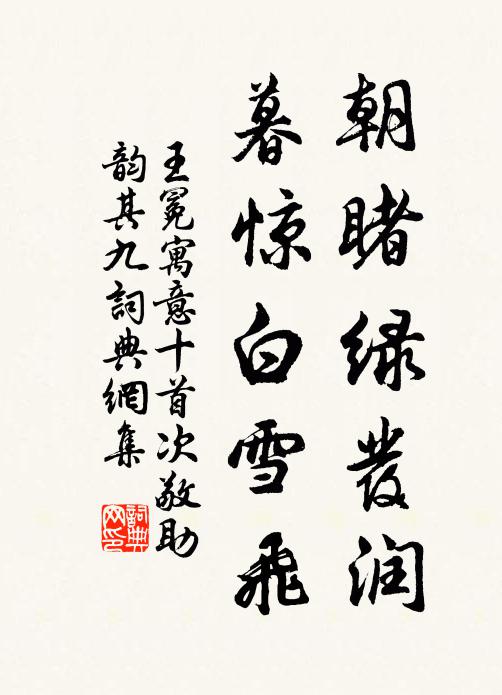 朝睹绿发润
暮惊白雪飞
王冕寓意十首次敬助
韵其九詞典網集
詞典
网印